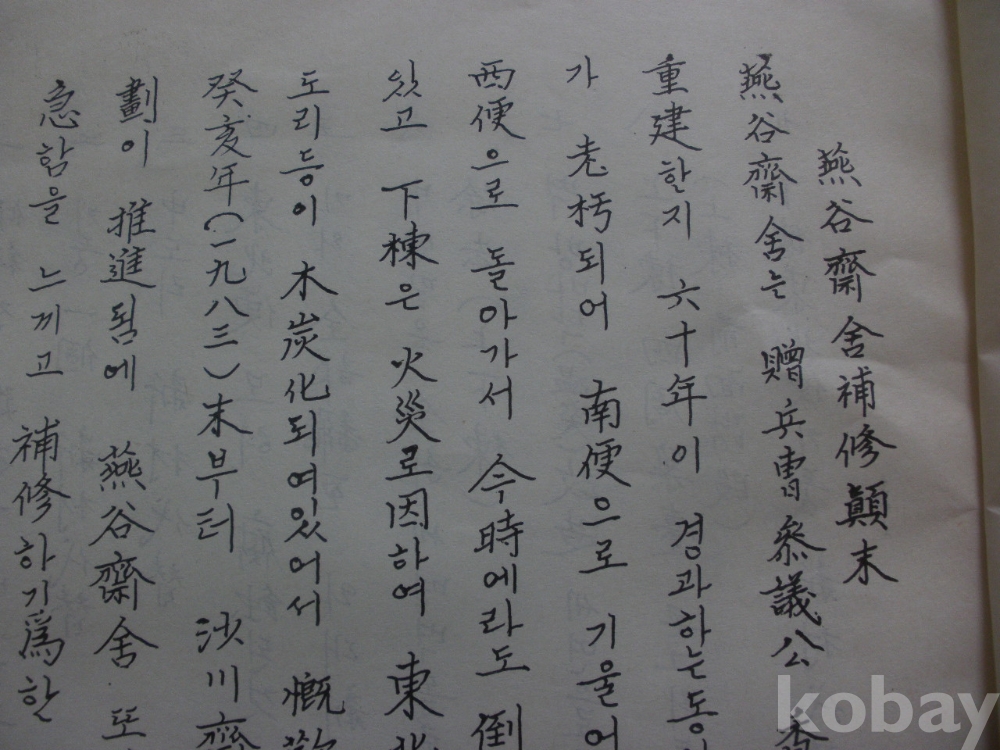 燕谷齋舍補修顚末
燕谷齋舍는 贈兵曹叅議公
重建한지 六十年이 경과하는동
가 老朽되어 南便으로 기울어
西便으로 돌아가서 今時에라도 倒
있고 下棟은 火災로因하여 東北
도리등이 木炭化되여있어서 慨歎
癸亥年(一九八三)末부터 沙川齋
劃이 推進됨에 燕谷齋舍 또
急함을 느끼고 補修하기爲한
kobay